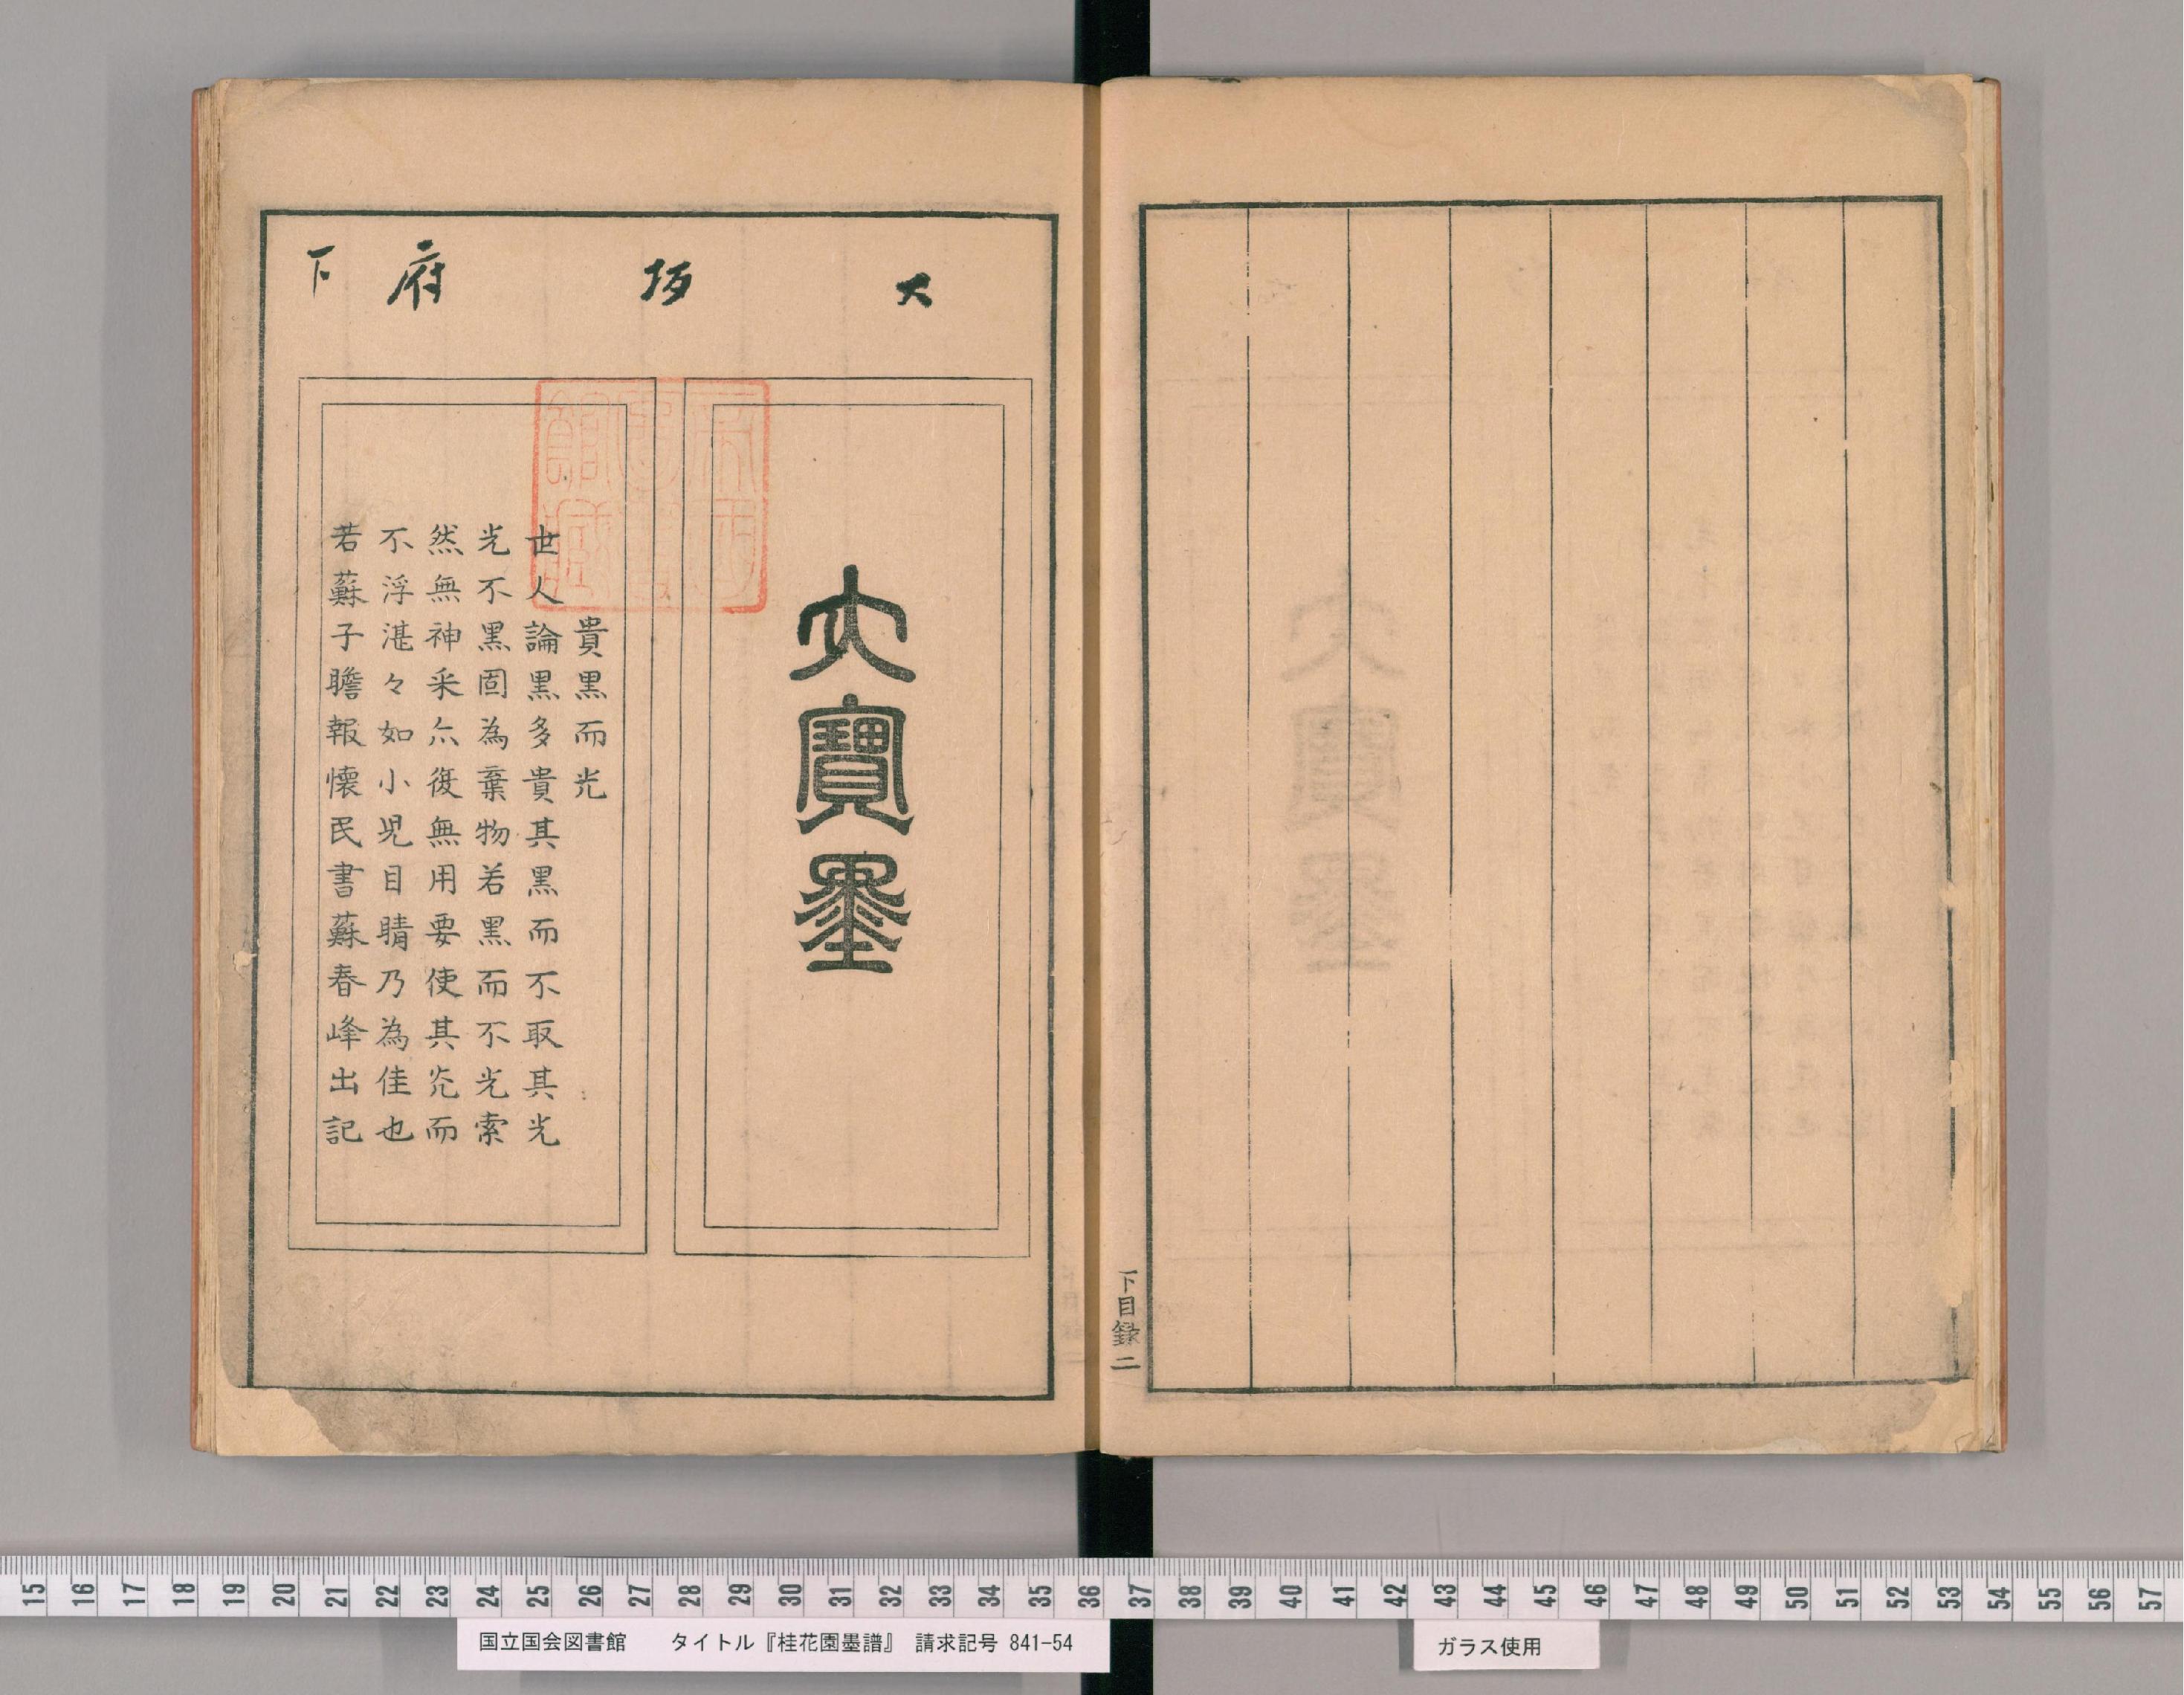 下目録二
大坂府下
大寶墨
帝國圖書館藏
貴黒而光
世人論黒多貴其黒而不取其光
光不黒固為棄物若黒而不光索
然無神采亦復無用要使其光而
不浮湛々如小児目睛乃為佳也
若蘇子瞻報懐民書蘇春峰出記
15 16 17 18 19 20 21 22 23 24 25 26 27 28 29 30 31 32 33 34 35 36 37 38 39 40 41 42 43 44 45 46 47 48 49 50 51 52 53 54 55 56 57
国立国会図書館 タイトル『桂花園墨譜』 請求記号 841-54
ガラス使用